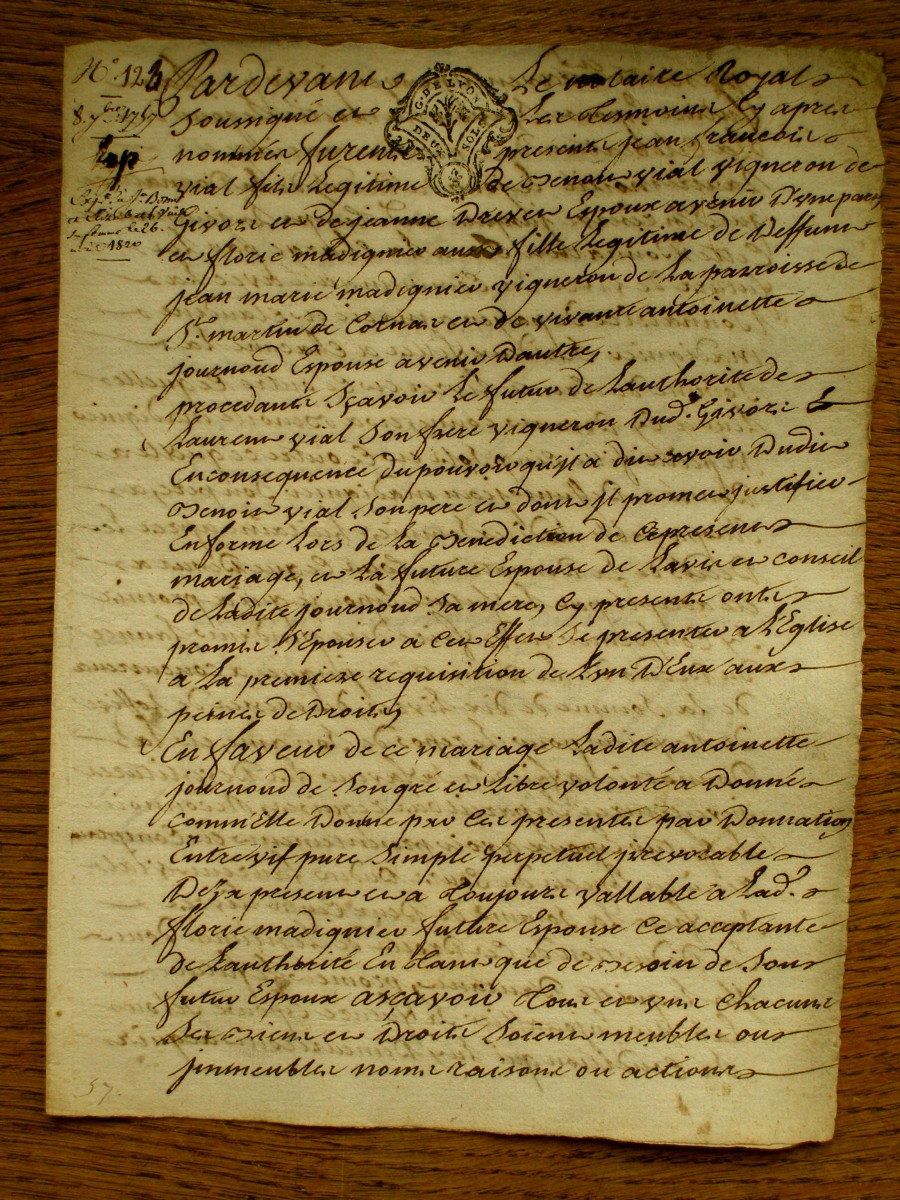 N° 123
8 9bre 1757
exp
1820
G. DE LYON
DEUX SOLS
Pardevant Le notaire Royal
Soussigné et Les tesmoins Cy apres
nommés furent presents jean francois
vial fils Legitime de Benoit vial vigneron de
Givors et de jeanne Dreven Espoux avenir D'une part
et florie madignier aussy fille Legitime de Deffunt
jean marie madignier vigneron de La parroisse de
St. martin de Cornas et de vivante antoinette
journoud Espouse avenir D'autre,
procedants Sçavoir Le futur de L'authorité de
Laurent vial Son frere vigneron Dud. Givors &
En consequence du pouvoir qu'jl a dit avoir Dudit
Benoit vial Son pere et dont jl promet justifier
En forme Lors de La Benediction de Ce present
mariage, et La future Espouse de L'avis et conseil
de Ladite journoud Sa mere, Cy presente ont
promis S'Epouser a Cet Effet Se presenter a L'Eglise
a La premiere requisition de L'un D'Eux aux
peines de Droit,
En faveur de ce mariage Ladite antoinette
journoud de Son gré et Libre volonté a Donné
comm'Elle Donne par Ces presentes par Donnation
Entre vif pure Simple perpetuel jrrevocable
Dez a present et a toujours vallable a Lad.
florie madignier future Espouse Ce acceptante
de L'authorité En tant que de Besoin de Son
futur Espoux asçavoir tous et uns Chacuns
Ses Biens et Droits Soient meubles ou
jmmeubles noms raisons ou actions
57.